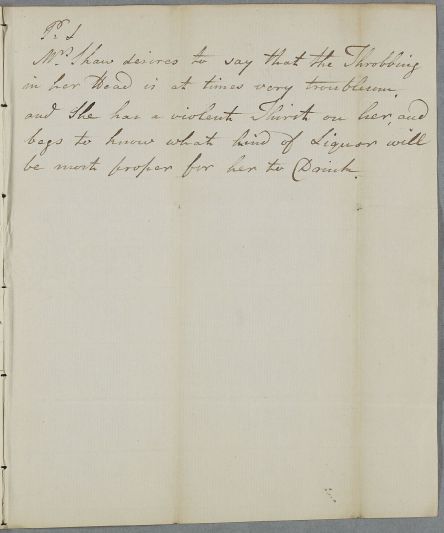 P. S
Mrs. Shaw desires to say that the Throbbing
in her Head is at times very troublsum,
and She has a violent Thirst on her, and
begs to know what kind of Liquor will
be most proper for her to Drink.